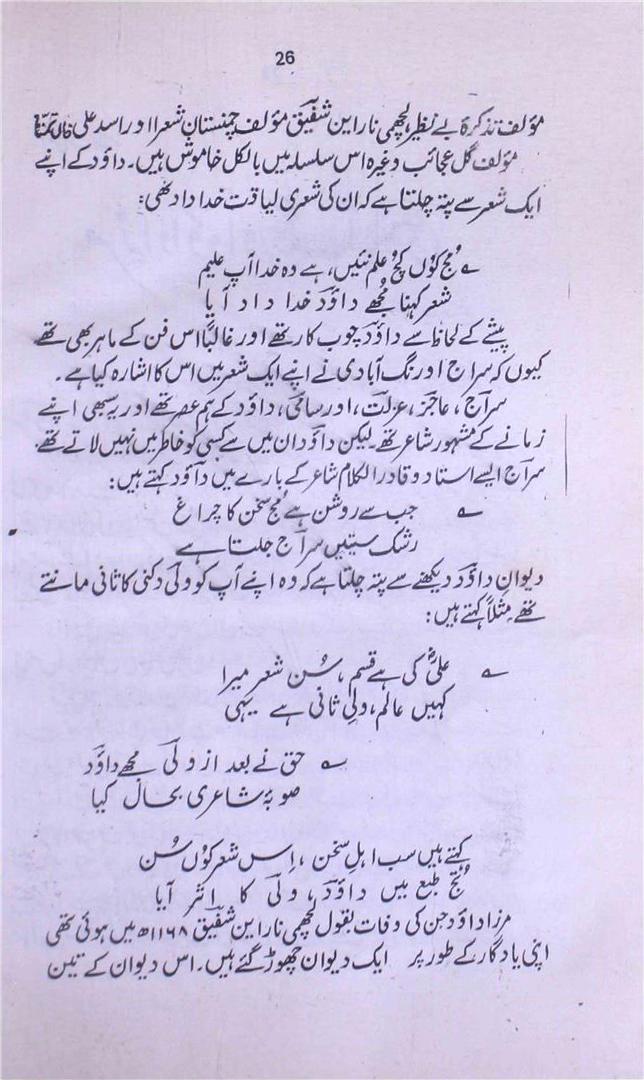 26
مؤلف تذکرۂ بے نظیر، لچھمی نارائن شفیق مؤلف چمنستان شعرا اور اسد علی خاں تمنا
مؤلف گل عجائب وغیرہ اس سلسلہ میں بالکل خاموش ہیں۔ داؤد کے اپنے
ایک شعر سے پتہ چلتا ہے کہ ان کی شعری لیاقت خداداد تھی:
؎ مُج کوں کچ علم نئیں، ہے وہ خدا آپ علیم
شعر کہنا مجھے داؤد خداداد آیا
پیشے کے لحاظ سے داؤد چوب کار تھے اور غالباً اس فن کے ماہر بھی تھے
کیوں کہ سراج اورنگ آبادی نے اپنے ایک شعر میں اس کا اشارہ کیا ہے۔
سراج، عاجز، عزلت، اور سامی، داؤد کے ہم عصر تھے اور یہ سبھی اپنے
زمانے کے مشہور شاعر تھے۔ لیکن داؤد ان میں سے کسی کو خاطر میں نہیں لاتے تھے۔
سراج ایسے استاد و قادر الکلام شاعر کے بارے میں داؤد کہتے ہیں:
؎ جب سے روشن ہے مُج سخن کا چراغ
رشک ستیں سراج جلتا ہے
دیوانِ داؤد دیکھنے سے پتہ چلتا ہے کہ وہ اپنے آپ کو ولی دکنی کا ثانی مانتے
تھے۔ مثلاً کہتے ہیں:
؎ علیؓ کی ہے قسم، سُن شعر میرا
کہیں عالم، ولیِ ثانی ہے یہی
؎ حق نے بعد از ولی مجھے داؤد
صوبۂ شاعری بحال کیا
کہتے ہیں سب اہلِ سخن، اِس شعر کوں سُن
تُج طبع میں داؤد، ولی کا اثر آیا
مرزا داؤد جن کی وفات بقول لچھمی نارائن شفیق ۱۱۶۸ھ میں ہوئی تھی
اپنی یادگار کے طور پر ایک دیوان چھوڑ گئے ہیں۔ اس دیوان کے تین